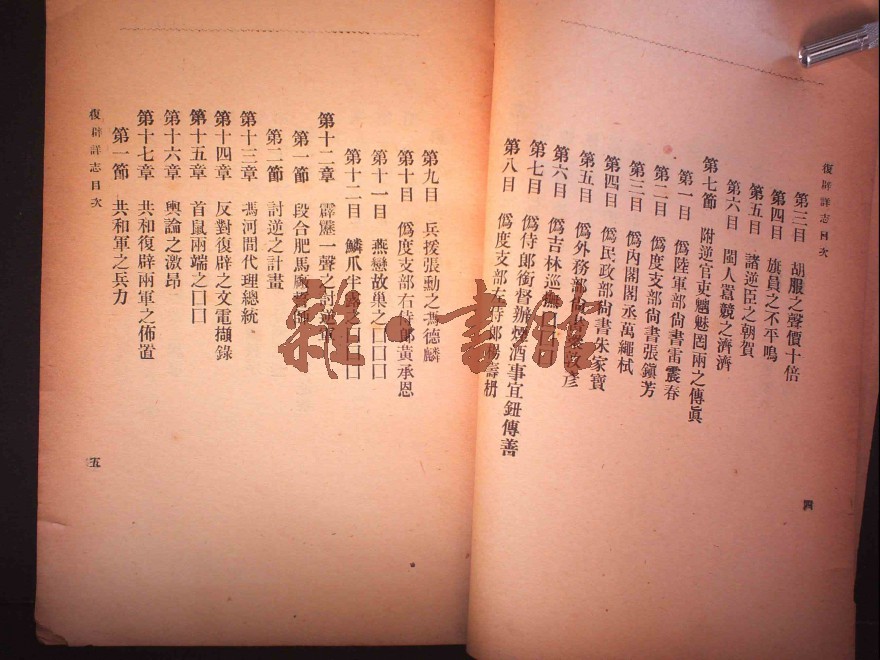 復辟詳志目次
第三目 胡服之聲價十倍
第四目 旗員之不平鳴
第五目 諸逆臣之朝賀
第六目 閹人囂競之濟濟
第七節 附逆官吏魑魅罔兩之傳眞
第一目 僞陸軍部尙書雷震春
第二目 僞度支部尙書張鎭芳
第三目 僞內閣閣丞萬繩栻
第四目 僞民政部尙書朱家寶
第五目 僞外務部尙書梁敦彥
第六目 僞吉林巡撫
第七目 僞侍郎銜督辦煙酒事宜鈕傳善
第八目 僞度支部左侍郎楊壽枏
四
第九目 兵援張勳之馮德麟
第十目 僞度支部右侍郎黃承恩
第十一目 燕戀故巢之囗囗囗
第十二目 鱗爪半露之囗囗囗
第十二章 霹靂一聲之討逆軍
第一節 段合肥馬廠誓師
第二節 討逆之計畫
第十三章 馮河間代理總統
第十四章 反對復辟之文電擷錄
第十五章 首鼠兩端之囗囗
第十六章 輿論之激昂
第十七章 共和復辟兩軍之佈置
第一節 共和軍之兵力
復辟詳志目次
五
雜·書館